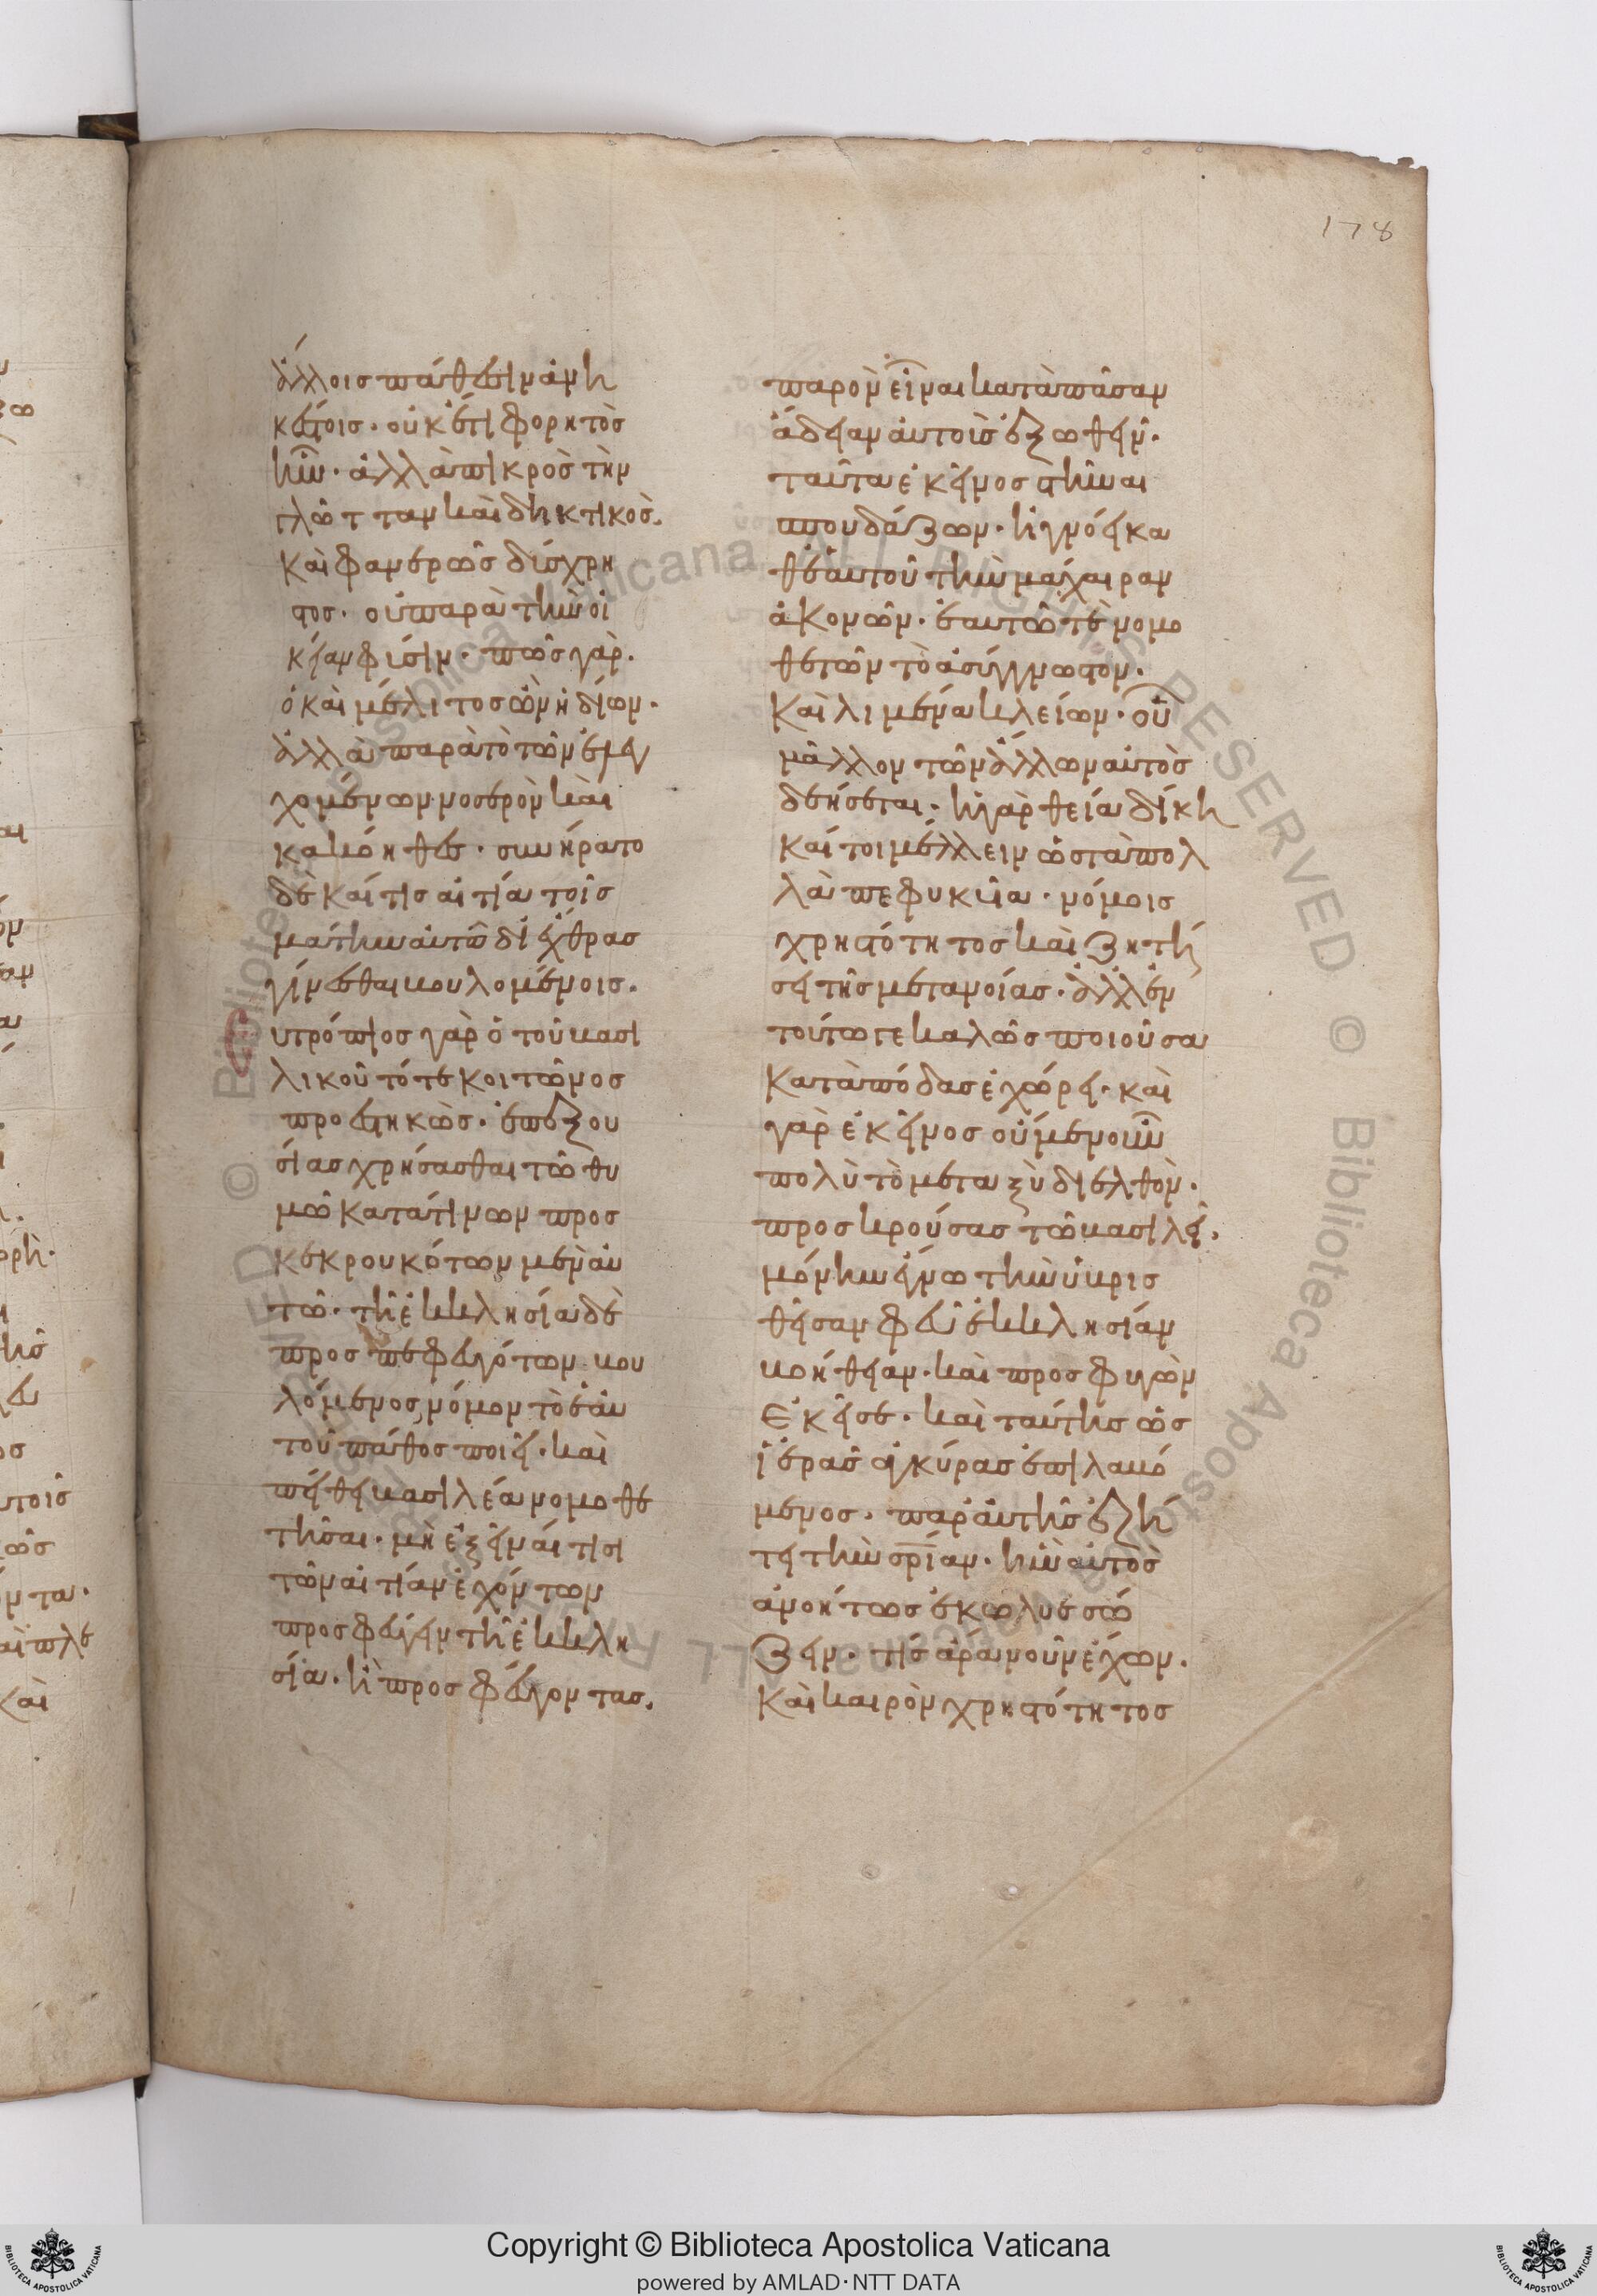 178
ἄλλοις πάθεσιν ἀνή
κεστοις. οὐκέτι φορητὸς
ἦν. ἀλλὰ πικρὸς τὴν
γλῶτταν καὶ δηκτικὸς.
Καὶ φανερῶς δύσχρη
στος. οὐ παρὰ τὴν οἰ
κείαν φύσιν. πῶς γὰρ.
ὁ καὶ μέλιτος ὢν ἡδίων.
ἀλλὰ παρὰ τὸ τῶν ἐλεγ
χομένων νοσερὸν καὶ
κακόηθες. συνήρατο
δὲ καί τις αἰτία τοῖς
μάτην αὐτῶ δι ἔχθρας
γίνεσθαι βουλομένοις.
Ευτρόπιος γὰρ ὁ τοῦ βασι
λικοῦ τότε κοιτῶνος
προεστηκὼς. ἐπ ἐξου
σίας χρήσασθαι τῶ θυ
μῶ κατά τινων προσ
κεκρουκότων μὲν αὐ
τῶ. τῆ ἐκκλησία δὲ
προσπεφευγότων βου
λόμενος, νόμον τὸ ἑαυ
τοῦ πάθος ποιεῖ. καὶ
πείθει βασιλέα νομοθε
τῆσαι. μὴ ἐξεῖναί τισι
τῶν αἰτίαν ἐχόντων
προσφεύγειν τῆ ἐκκλη
σία. ἢ προσφεύγοντας.
παρὸν εἶναι κατὰ πᾶσαν
ἄδειαν αὐτοὺς ἐξωθεῖν.
ταῦτα ἐκεῖνος στῆναι
σπουδάζων. ἠγνόει κα
θ ἑαυτοῦ τὴν μάχαιραν
ἀκονῶν. ἑαυτῶ τε νομο
θετῶν τὸ ἀσύγγνωστον.
Καὶ λιμένα κλείων. οὗ
μᾶλλον τῶν ἄλλων αὐτὸς
δεήσεται. ἡ γὰρ θεία δίκη
καί τοι μέλλειν ὡς τὰ πολ
λὰ πεφυκυῖα. νόμοις
χρηστότητος καὶ ζητή
σει τῆς μετανοίας. ἀλλ ἐν
τούτω γε καλῶς ποιοῦσα
Κατὰ πόδας ἐχώρει. καὶ
γὰρ ἐκεῖνος οὐ μενοῦν
πολὺ τὸ μεταξὺ διελθὸν.
προσκρούσας τῶ βασιλεῖ.
μόνην ἔγνω τὴν ὑβρισ
θεῖσαν φεῦ ἐκκλησίαν
βοήθειαν. καὶ προσφυγὼν
Ἐκεῖσε. καὶ ταύτης ὡς
ἱερᾶς ἀγκύρας ἐπιλαβό
μενος. παρ αὐτῆς ἐζή
τει τὴν σρίαν. ἣν αὐτὸς
ἀνοήτως ἐκώλυε σώ
ζειν. τίς ἄρα νοῦν ἔχων.
Καὶ καιρὸν χρηστότητος
Copyright © Biblioteca Apostolica Vaticana
powered by AMLAD·NTT DATA